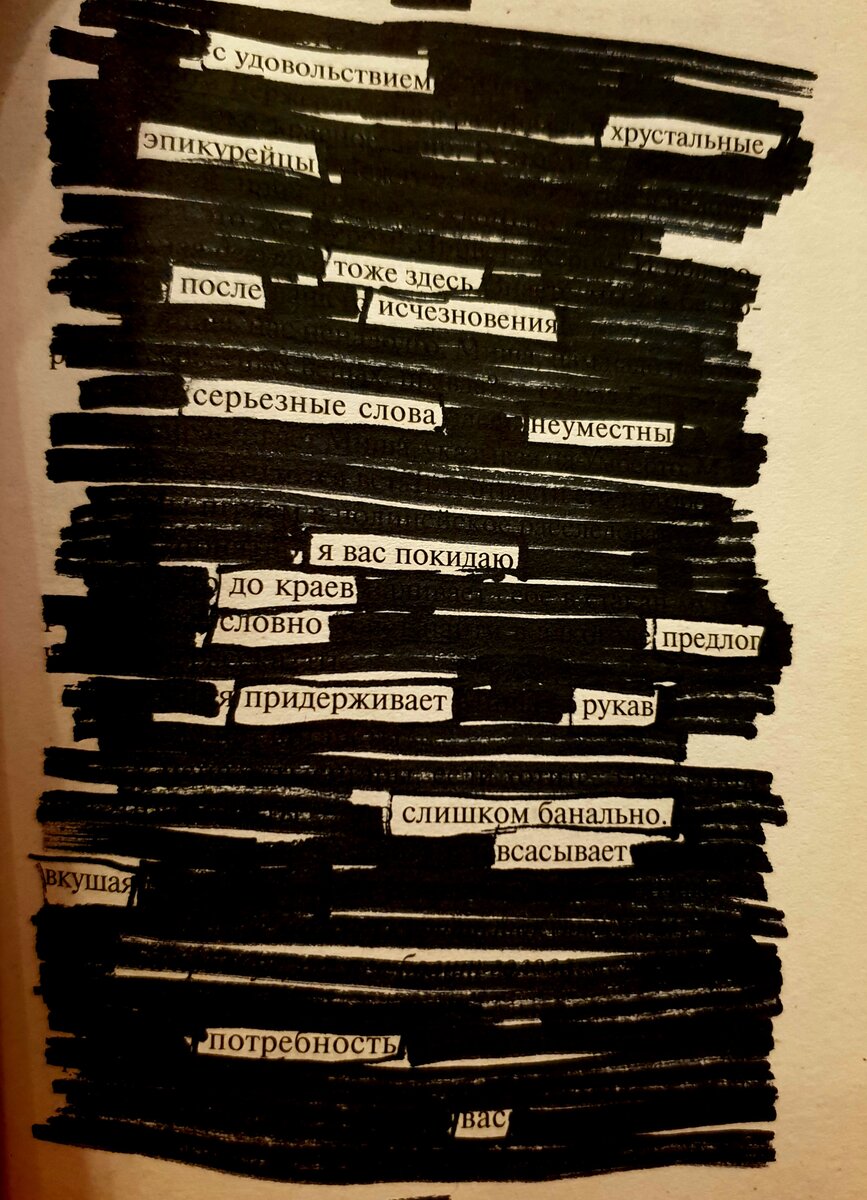 с удовольствием
хрустальные
эпикурейцы
тоже здесь
после
исчезновения
серьезные слова
неуместны
я вас покидаю
до краев
словно
предлог
придерживает рукав
слишком банально.
всасывает
вкушая
потребность
вас